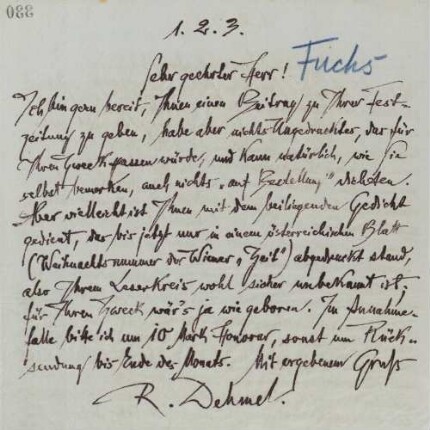 088
1. 2. 3.
Sehr geehrter Herr! Fuchs
Ich bin gern bereit, Ihnen einen Beitrag zu Ihrer Fest-
zeitung zu geben, habe aber nichts Ungedrucktes, das für
Ihren Zweck passen würde, und kann natürlich, wie Sie
selbst bemerken, auch nichts „auf Bestellung“
Aber vielleicht ist Ihnen mit dem beiliegenden Gedicht
gedient, das bis jetzt nur in einem österreichischen Blatt
(Weihnachtsnummer der Wiener „Zeit“) abgedruckt stand,
also Ihrem Leserkreis wohl sicher unbekannt ist;
für Ihren Zweck wär's ja wie geboren. Im Annahme-
falle bitte ich um 10 Mark Honorar, sonst um Rück-
sendung bis Ende des Monats. Mit ergebenem Gruß
R. Dehmel.